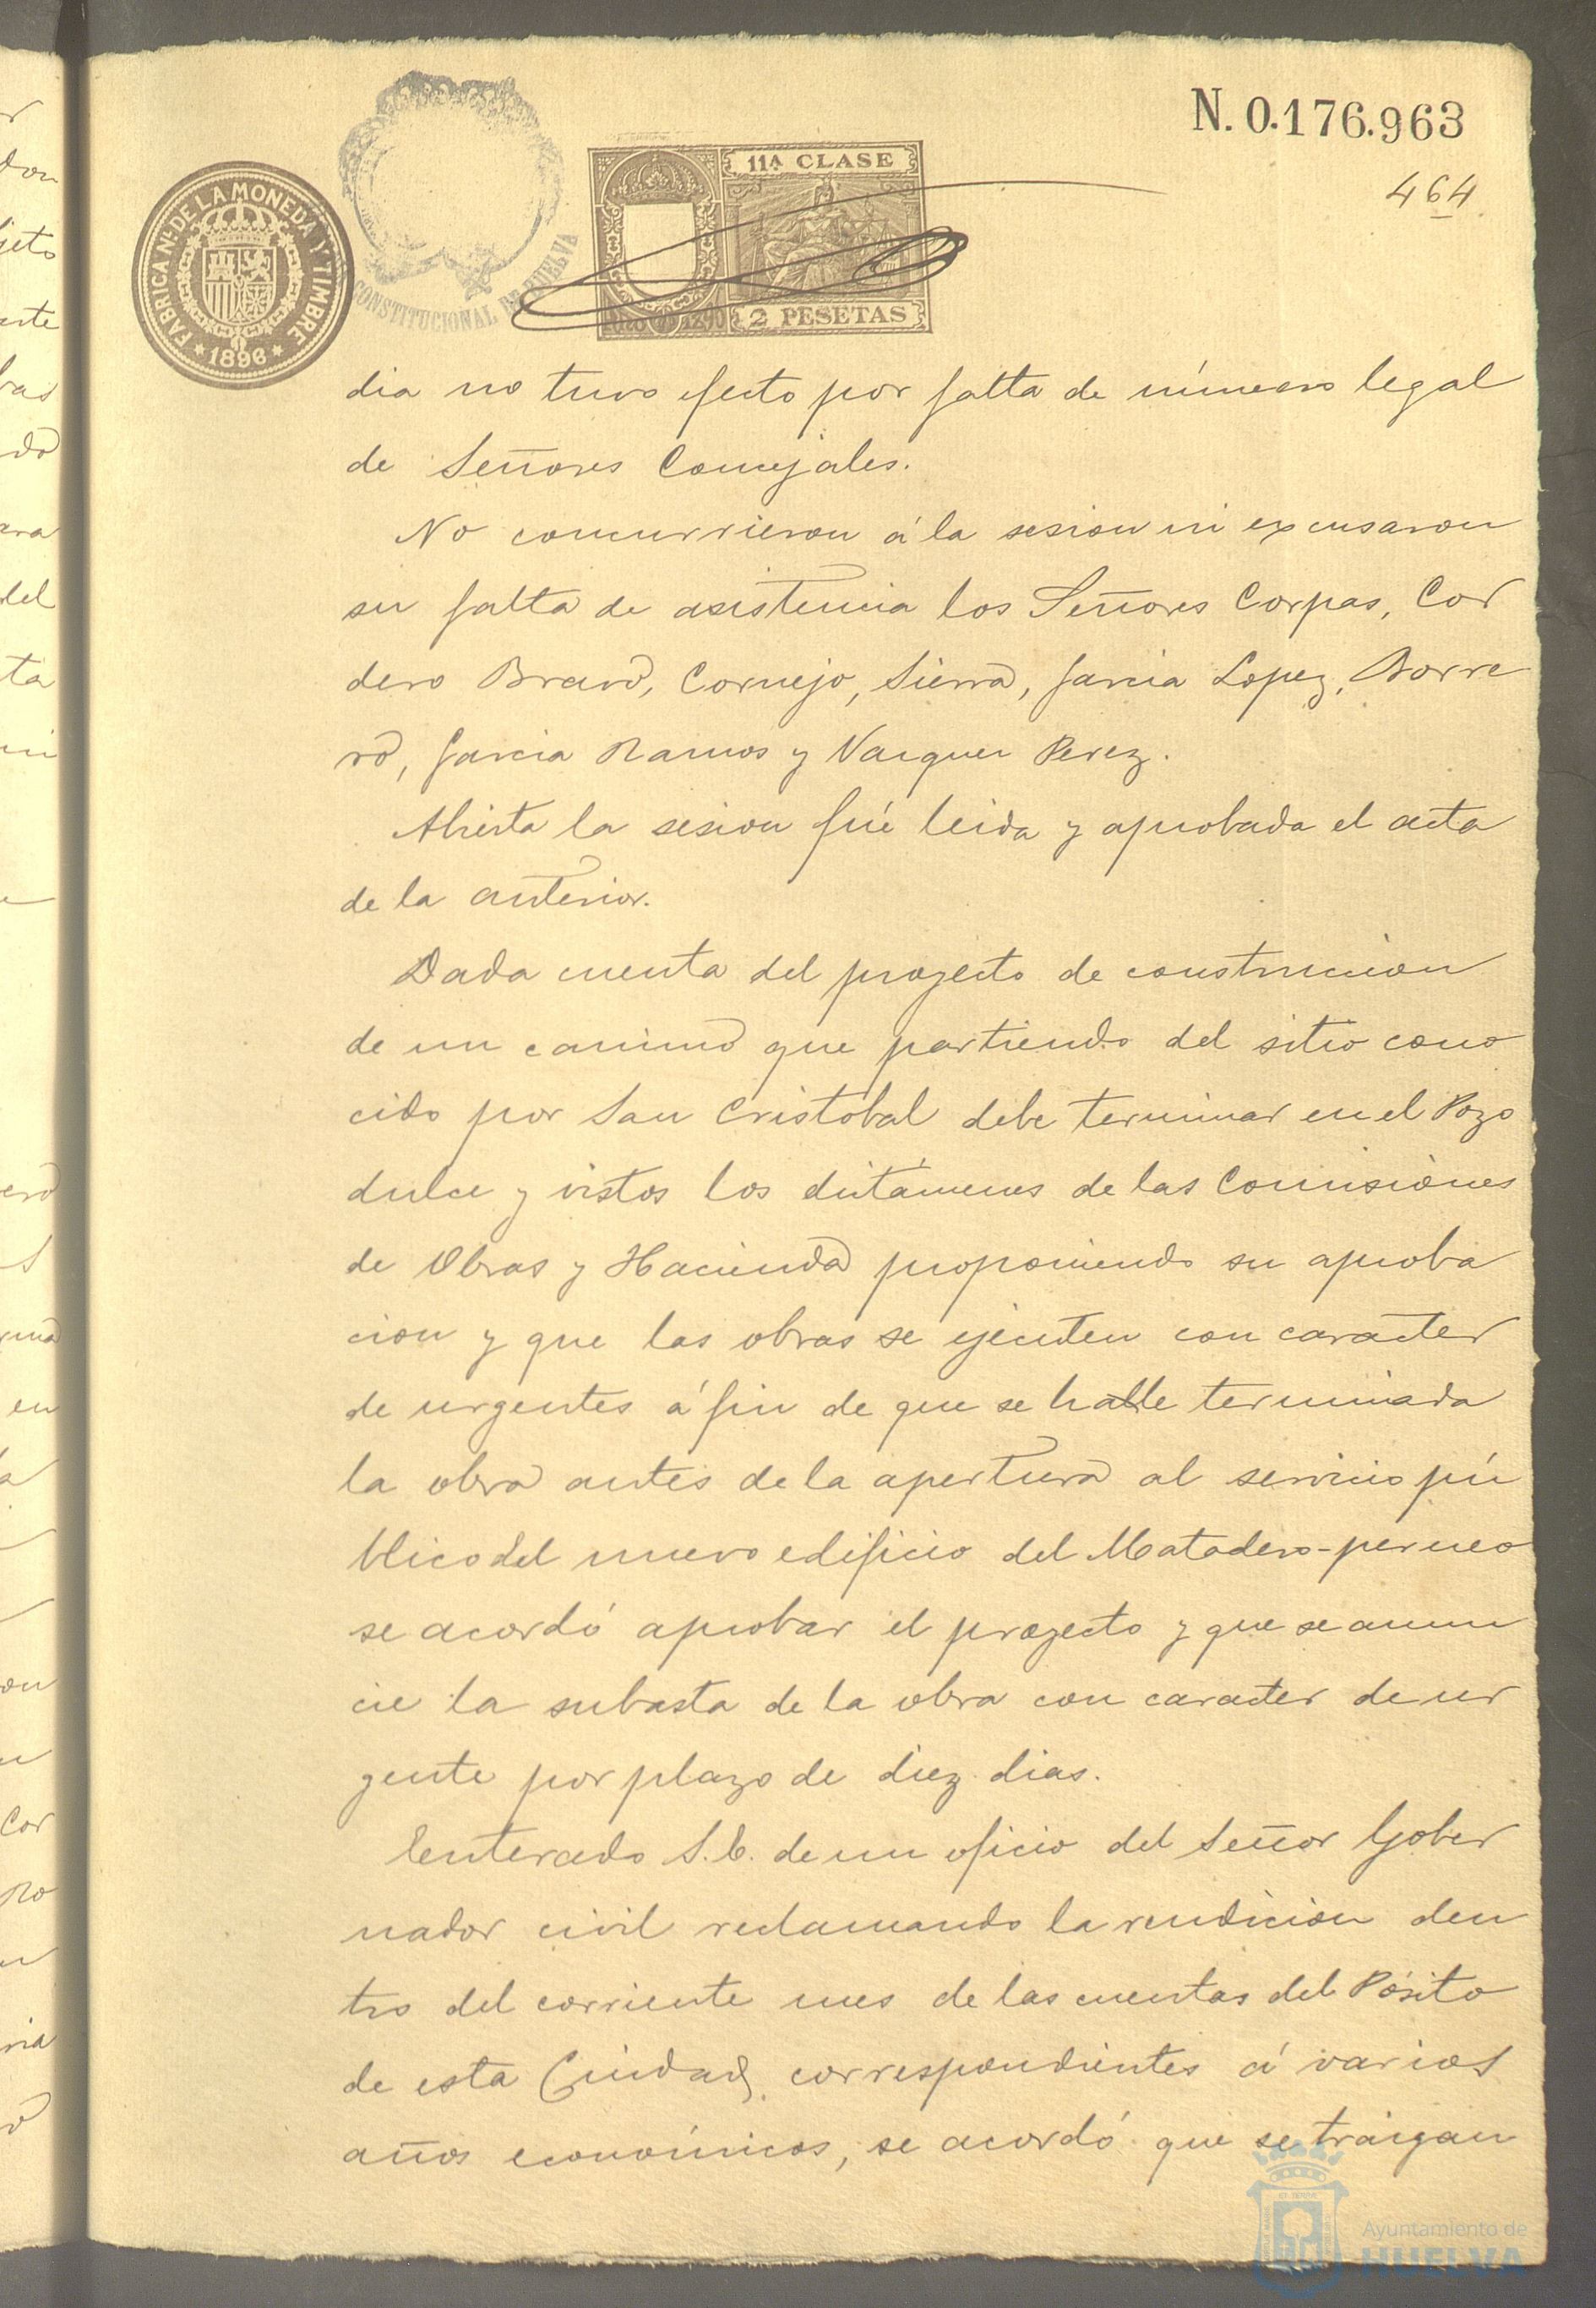 N. 0.176.963
464
FABRICA NL. DE LA MONEDA Y TIMBRE
* 1896 *
CONSTITUCIONAL DE HUELVA
11ª CLASE
2 PESETAS
dia no tuvo efecto por falta de número legal
de Señores Concejales.
No concurrieron á la sesion ni excusaron
su falta de asistencia los Señores Corpas, Cor
dero Bravo, Cornejo, Sierra, Garcia Lopez, Borre
ro, Garcia Ramos y Vazquez Perez.
Abierta la sesion fué leida y aprobada el acta
de la anterior.
Dada cuenta del proyecto de construccion
de un camino que partiendo del sitio cono
cido por San Cristobal debe terminar en el Pozo
dulce y vistos los dictámenes de las Comisiones
de Obras y Hacienda proponiendo su aproba
cion y que las obras se ejecuten con caracter
de urgentes á fin de que se halle terminada
la obra antes de la apertura al servicio pú
blico del nuevo edificio del Matadero-perneo
se acordó aprobar el proyecto y que se anun
cie la subasta de la obra con caracter de ur
gente por plazo de diez dias.
Enterado S.E. de un oficio del Señor Gober
nador civil reclamando la rendicion den
tro del corriente mes de las cuentas del Pósito
de esta Ciudad, correspondientes á varios
años económicos, se acordó que se traigan
Ayuntamiento de
HUELVA